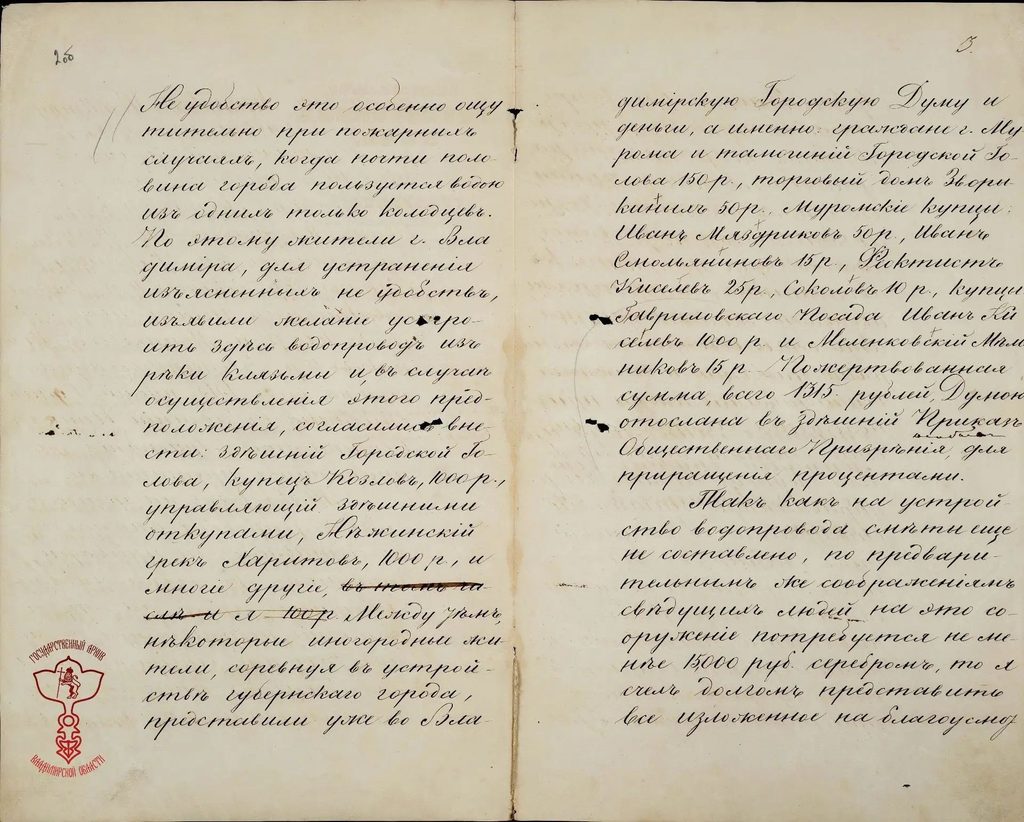 2об
Не удобство это особенно ощу
тительно при пожарныхъ
случаяхъ, когда почти поло-
вина города пользуется водою
изъ однихъ только колодцевъ.
По этому жители г. Вла
диміра, для устраненія
изъясненныхъ не удобствъ,
изъявили желаніе устро-
ить здѣсь водопроводъ изъ
рѣки Клязьмы и, въ случаѣ
осуществленія этого пред-
положенія, согласились вне-
сти: здѣшній Городской Го-
лова, купецъ Козловъ, 1000 р.,
управляющій здѣшними
откупами, Нѣжинскій
грекъ Харитовъ, 1000 р., и
многіе другіе, въ томъ чи
слѣ и я 100 р Между тѣмъ,
нѣкоторые иногородные жи
тели, соревнуя въ устрой-
ствѣ губернскаго города,
представили уже во Вла-
ГОСУДАРСТВЕННЫЙ АРХИВ
ВЛАДИМИРСКОЙ ОБЛАСТИ
3.
димірскую Городскую Думу и
деньги, а именно: граждане г. Му
рома и тамошній Городской Го-
лова 150 р., торговый домъ Звори
киныхъ 50 р., Муромскіе купцы:
Иванъ Мяздриковъ 50 р., Иванъ
Смольяниновъ 15 р., Феоктистъ
Киселевъ 25 р., Соколовъ 10 р., купцы
Гавриловскаго Посада Иванъ Ки
селевъ 1000 р. и Меленковскій Мѣль
никовъ 15 р. Пожертвованная
сумма, всего 1315. рублей, Думою
отослана въ здѣшній Приказъ
Общественнаго Призрѣнія, для
приращенія процентами.
Такъ какъ на устрой
ство водопровода смѣты еще
не составлено, по предвари-
тельнымъ же соображеніямъ
свѣдущихъ людей на это со-
оруженіе потребуется не ме-
нѣе 15000 руб. серебромъ, то я
счелъ долгомъ представить
все изложенное на благоусмот